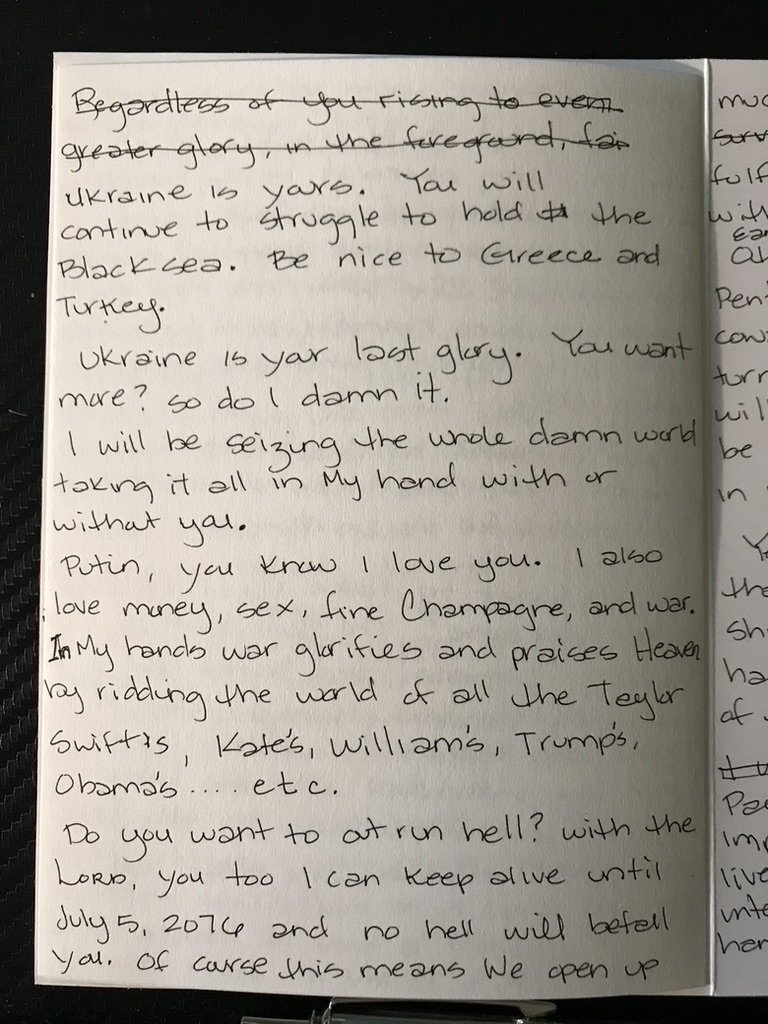 Regardless of you rising to even
greater glory, in the foreground, for
Ukraine is yours. You will
continue to struggle to hold the
Black sea. Be nice to Greece and
Turkey.
Ukraine is your last glory. You want
more? so do I damn it.
I will be seizing the whole damn world
taking it all in My hand with or
without you.
Putin, you know I love you. I also
love money, sex, fine Champagne, and war.
In My hands war glorifies and praises Heaven
by ridding the world of all the Taylor
Swift's, Kate's, William's, Trump's,
Obama's .... etc.
Do you want to out run hell? with the
LORD, you too I can keep alive until
July 5, 2076 and no hell will befall
you. Of course this means We open up
muc
fulf
with
Pen
turn
will
be
in
the
sh
ha
of
Pa
Imp
live
unto
her